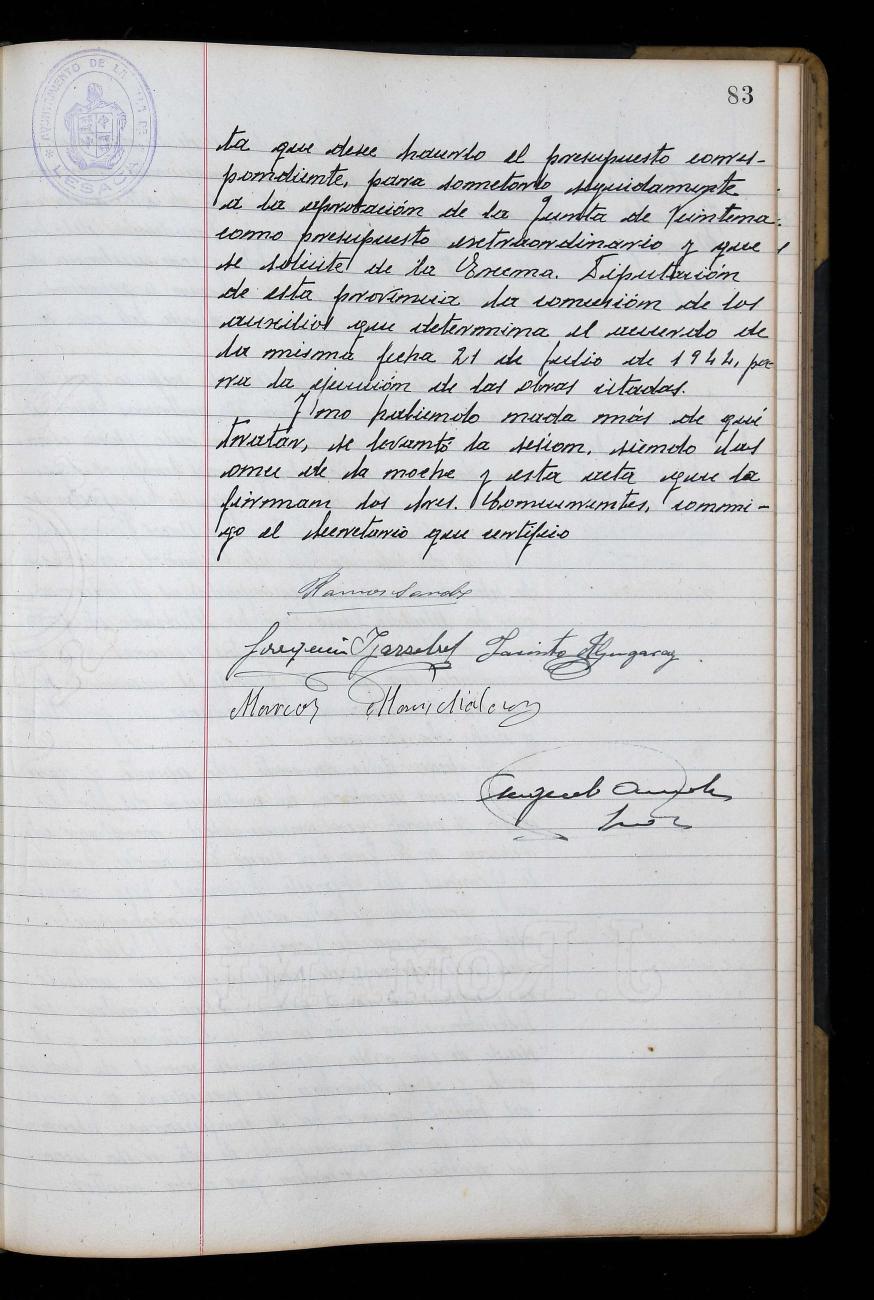 83
AYUNTAMIENTO DE LA
LESACA
ta que dese haerlo el presupuesto corres-
pondiente, para someterlo seguidamente
a la aprobación de la Junta de Veintena
como presupuesto extraordinario y que
se solicite de la Excma. Diputación
de esta provincia la concesión de los
auxilios que determina el acuerdo de
la misma fecha 21 de Julio de 1944, pa-
ra la ejecución de las obras citadas.
Y no habiendo nada más de qué
tratar, se levantó la sesion, siendo las
once de la noche y esta acta que la
firman los Sres. Concurrentes, conmi-
go el Secretario que certifico
Ramos
Joaquin
Marcos